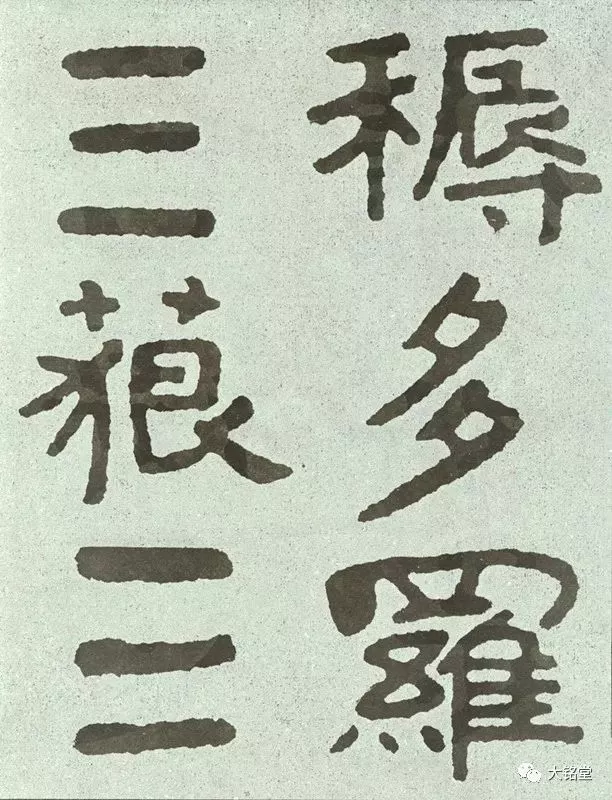 耨多羅
三藐三
大铭堂